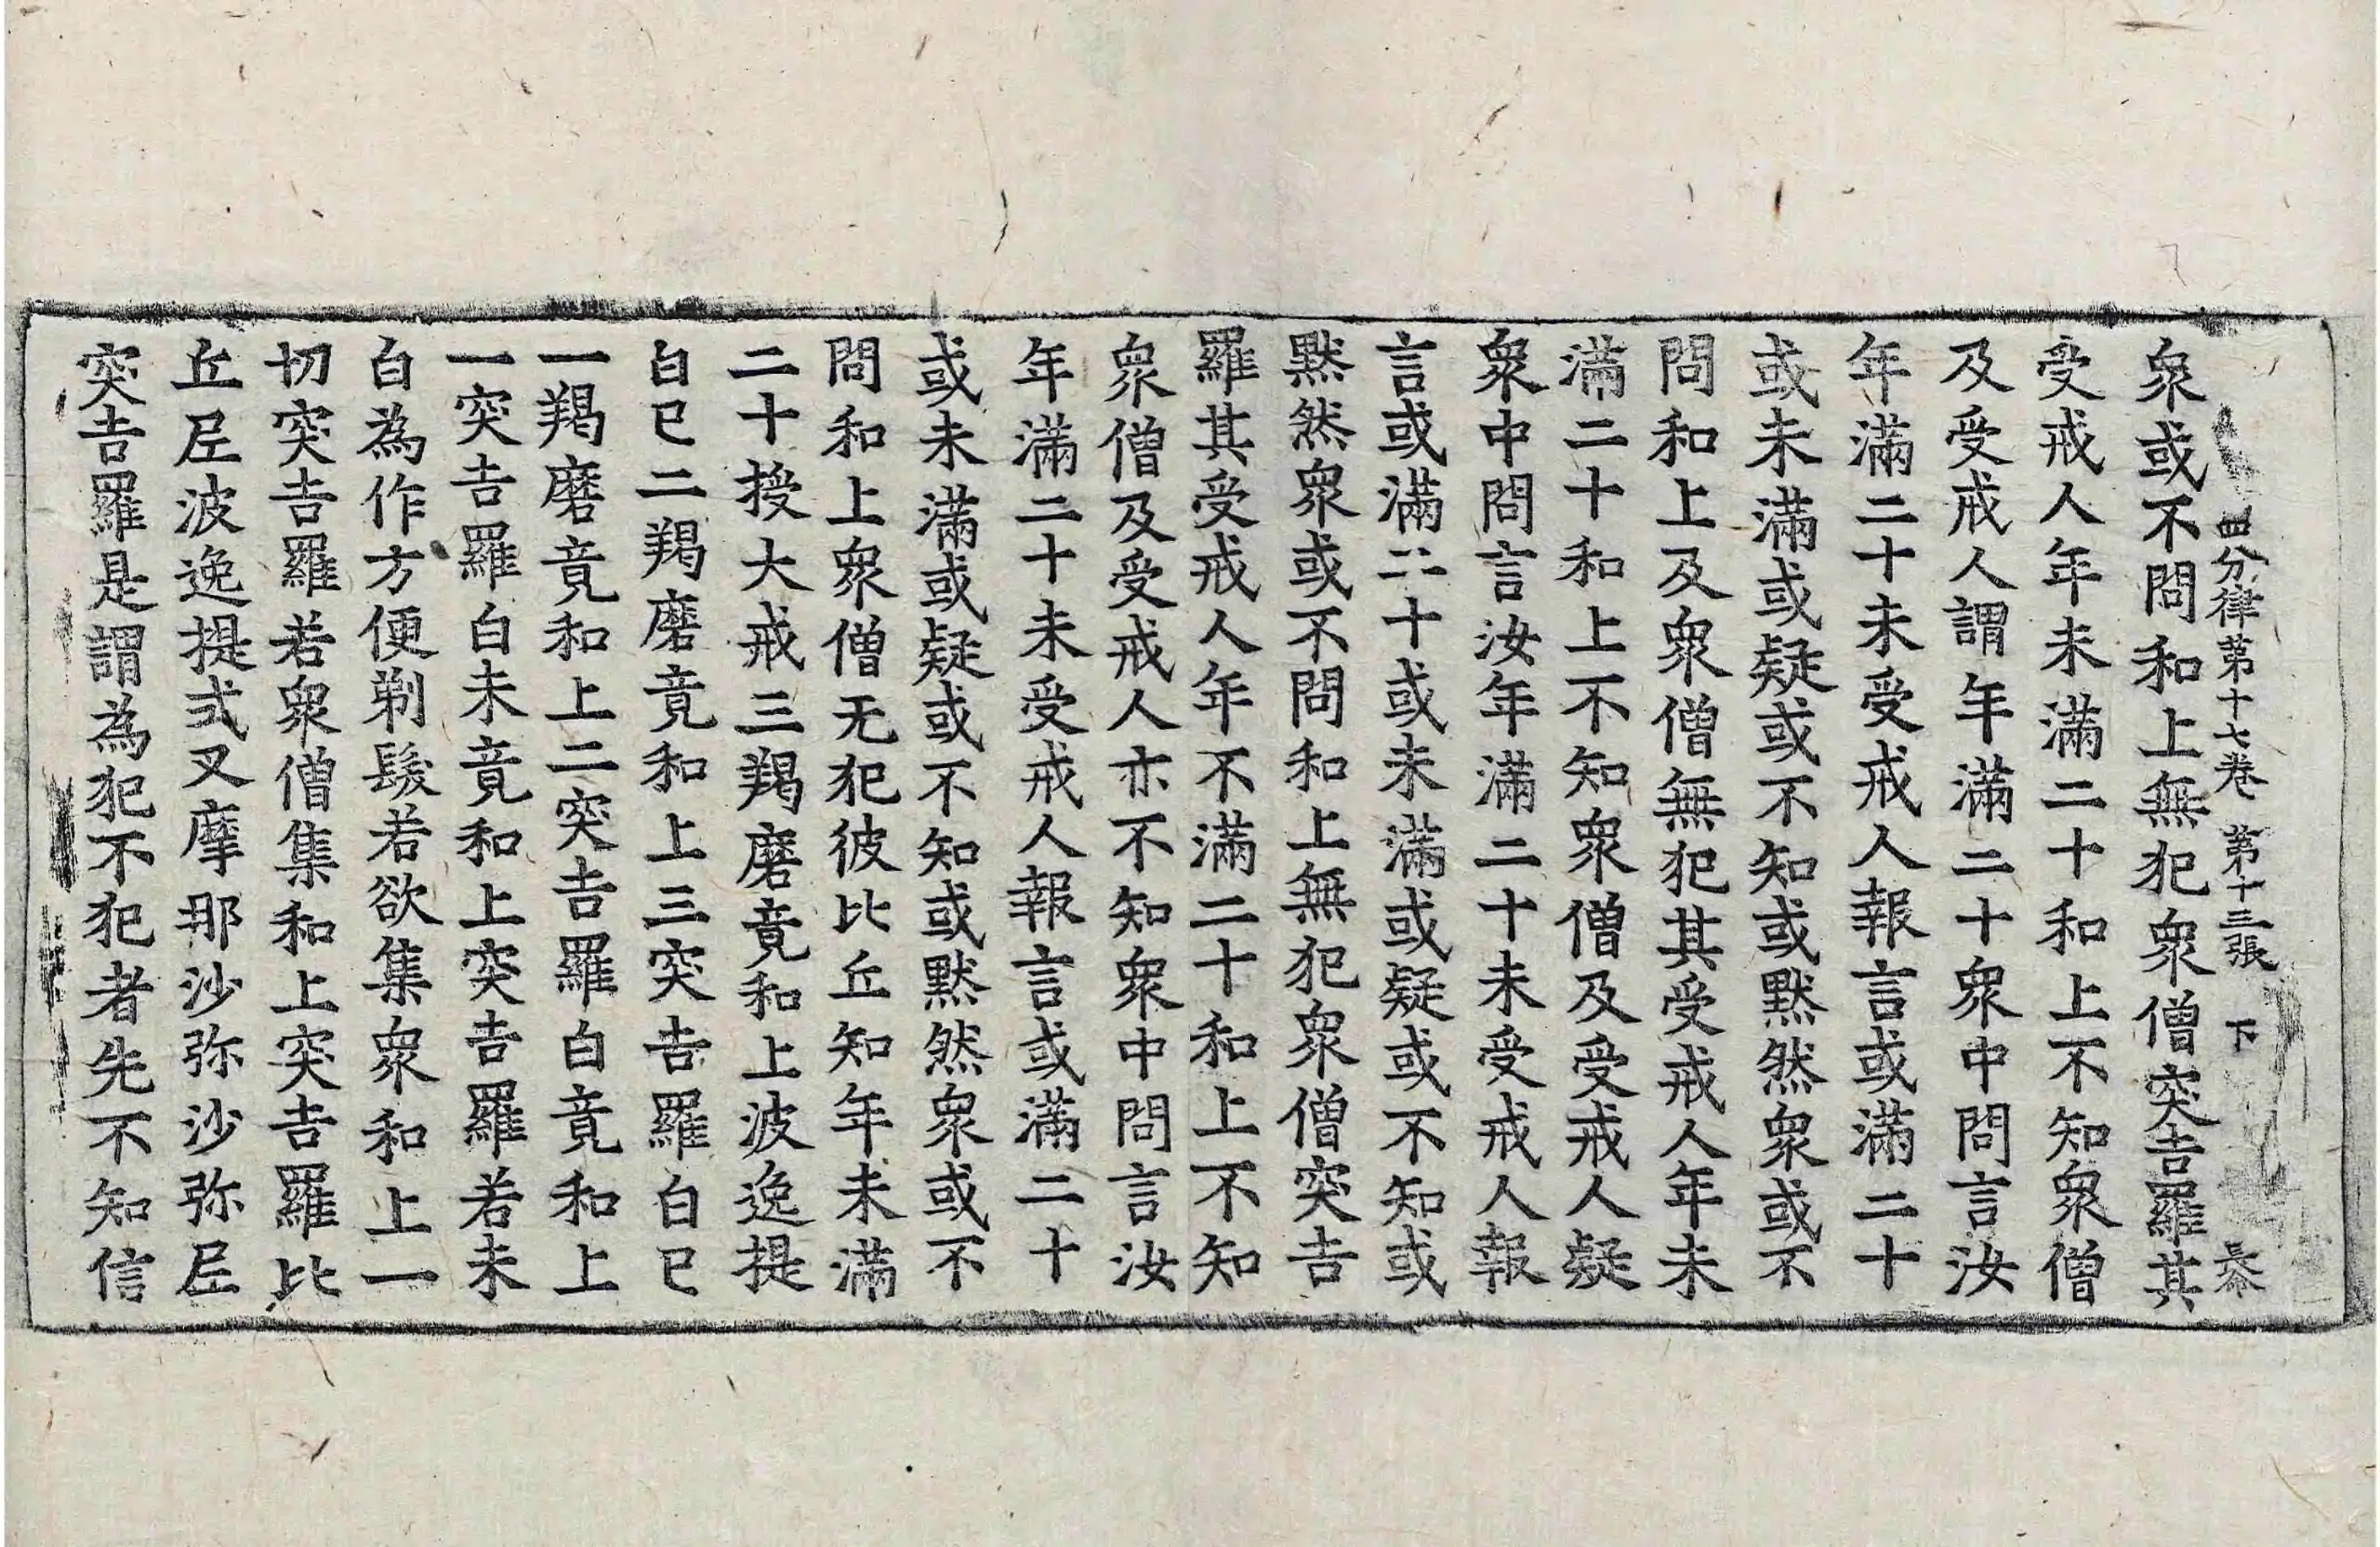 四分律第十七卷 第十三張 下
衆或不問和上無犯衆僧突吉羅其
受戒人年未滿二十和上不知衆僧
及受戒人謂年滿二十衆中問言汝
年滿二十未受戒人報言或滿二十
或未滿或疑或不知或默然衆或不
問和上及衆僧無犯其受戒人年未
滿二十和上不知衆僧及受戒人疑
衆中問言汝年滿二十未受戒人報
言或滿二十或未滿或疑或不知或
默然衆或不問和上無犯衆僧突吉
羅其受戒人年不滿二十和上不知
衆僧及受戒人亦不知衆中問言汝
年滿二十未受戒人報言或滿二十
或未滿或疑或不知或默然衆或不
問和上衆僧无犯彼比丘知年未滿
二十授大戒三羯磨竟和上波逸提
白已二羯磨竟和上三突吉羅白已
一羯磨竟和上二突吉羅白竟和上
一突吉羅白未竟和上突吉羅若未
白為作方便剃髮若欲集衆和上一
切突吉羅若衆僧集和上突吉羅比
丘尼波逸提式叉摩那沙弥沙弥尼
突吉羅是謂為犯不犯者先不知信